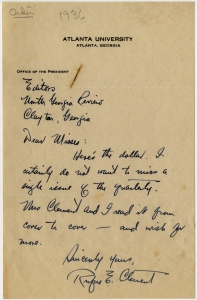 1936
ATLANTA UNIVERSITY
ATLANTA, GEORGIA
OFFICE OF THE PRESIDENT
Editors
North Georgia Review
Clayton, Georgia
Dear Misses:
Here's the dollar. I
certainly do not want to miss a
single issue of the quarterly.
Mrs Clement and I read it from
cover to cover — and wish for
more.
Sincerely yours,
Rufus E. Clement